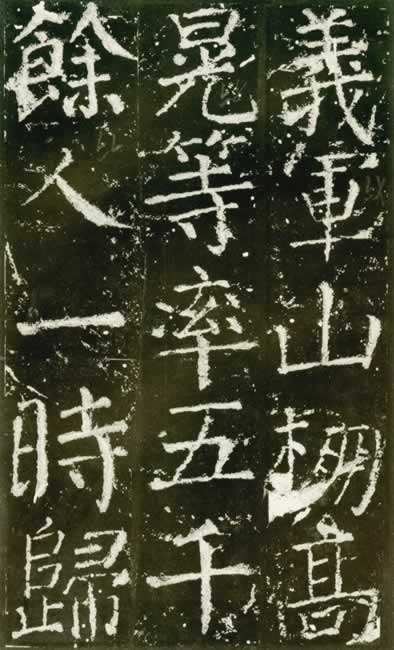 義軍山栅高
晃等率五千
餘人一時歸